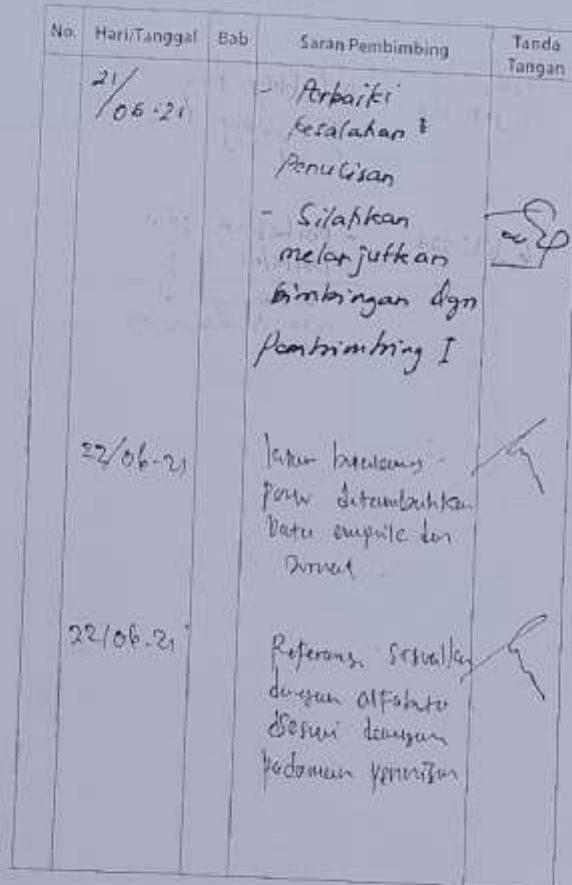 No. Hari/Tanggal Bab Saran Pembimbing Tanda Tangan
21/06-21 - Perbaiki
kesalahan²
Penulisan
- Silahkan
melanjutkan
bimbingan dgn
Pembimbing I
22/06-21 latar belakang
perlu ditambahkan
Data empirik dan
Jurnal
22/06-21 Referensi sesuaikan
dengan alfabet
dengan
pedoman penulisan